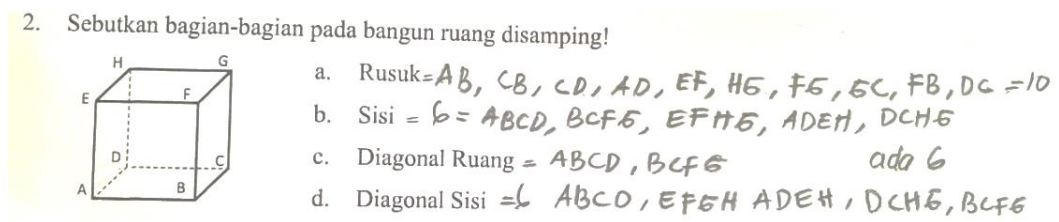 2. Sebutkan bagian-bagian pada bangun ruang disamping!
H G
E F
D C
A B
a. Rusuk=AB, CB, CD, AD, EF, HG, FG, GC, FB, DG =10
b. Sisi = 6 = ABCD, BCFG, EFHG, ADEH, DCHG
c. Diagonal Ruang = ABCD, BCFG ada 6
d. Diagonal Sisi =6 ABCD, EFGH ADEH, DCHG, BCFG